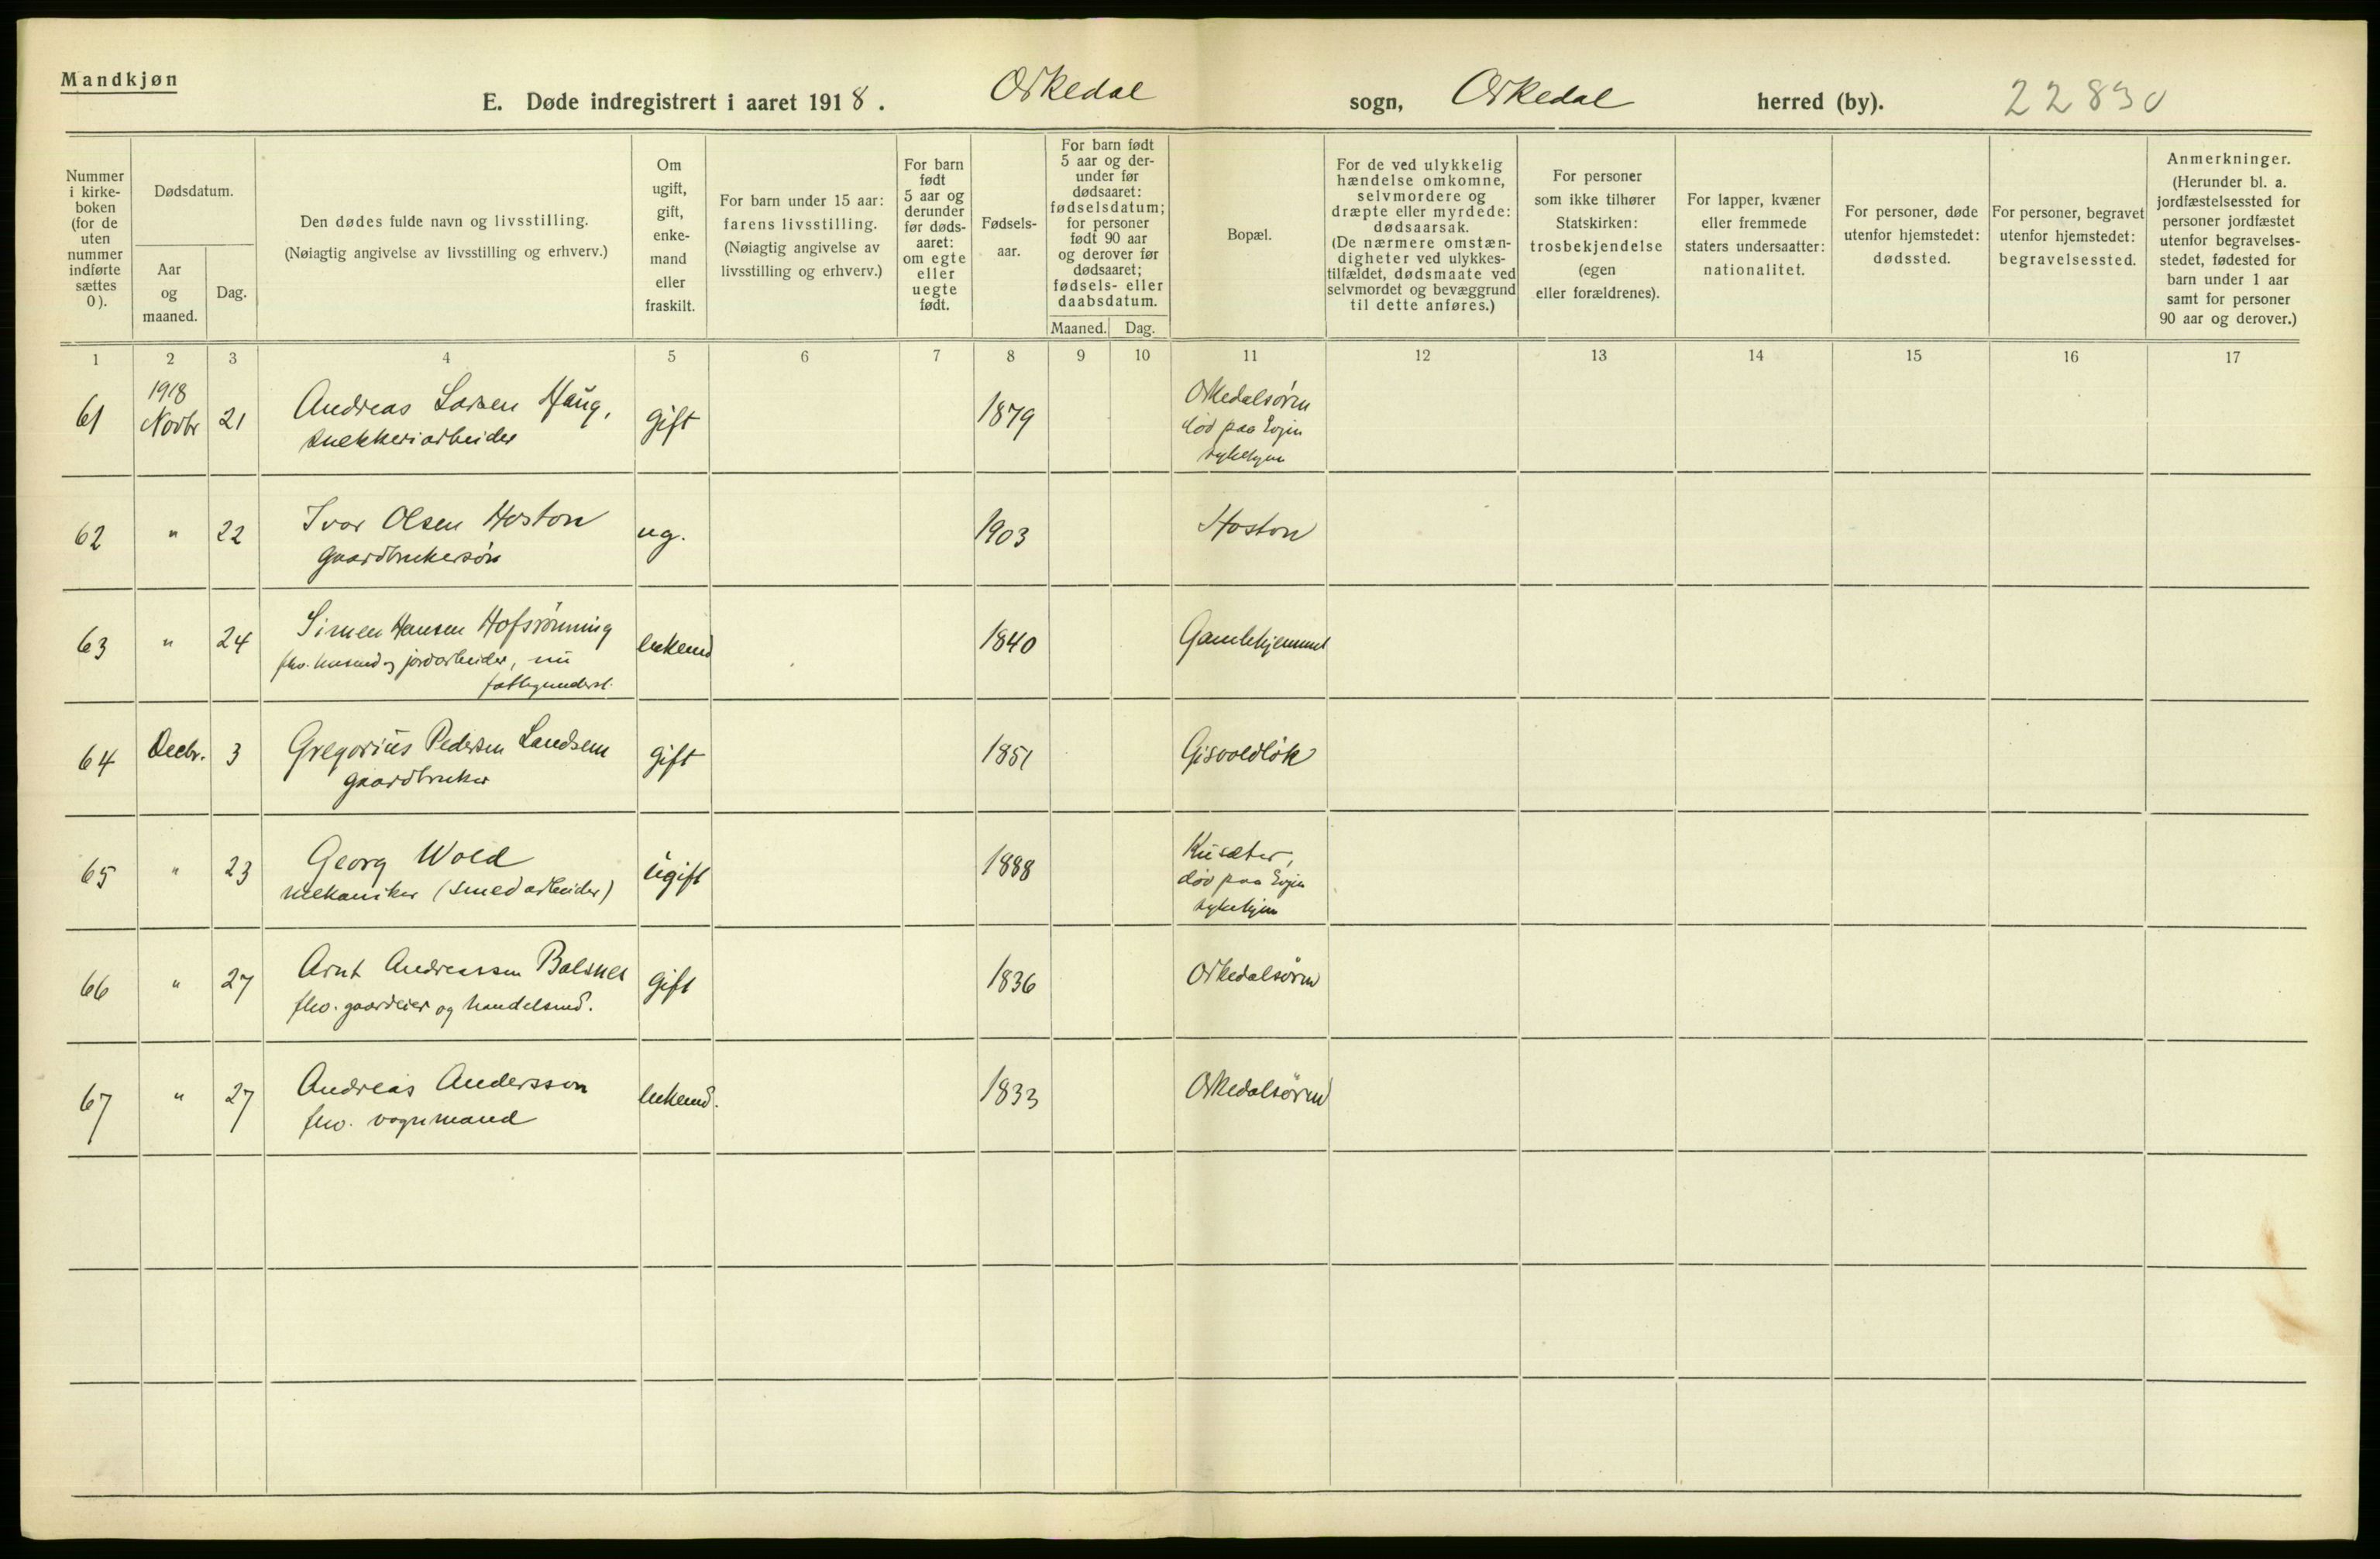 Mandkjøn
E. Døde indregistrert i aaret 1918. Orkedal sogn, Orkedal herred (by). 22830
Nummer i kirke-boken (for de uten nummer indførte sættes 0).
Dødsdatum.
Aar og maaned.
Dag.
Den dødes fulde navn og livsstilling.
(Nøiagtig angivelse av livsstilling og erhverv.)
Om ugift, gift, enke-mand eller fraskilt.
For barn under 15 aar: farens livsstilling.
(Nøiagtig angivelse av livsstilling og erhverv.)
For barn født 5 aar og derunder før døds-aaret: om egte eller uegte født.
Fødsels-aar.
For barn født 5 aar og der-under før dødsaaret: fødselsdatum; for personer født 90 aar og derover før dødsaaret; fødsels- eller daabsdatum.
Maaned. Dag.
Bopæl.
For de ved ulykkelig hændelse omkomne, selvmordere og dræpte eller myrdede: dødsaarsak.
(De nærmere omstæn-digheter ved ulykkes-tilfældet, dødsmaate ved selvmordet og bevæggrund til dette anføres.)
For personer som ikke tilhører Statskirken: trosbekjendelse (egen eller forældrenes).
For lapper, kvæner eller fremmede staters undersaatter: nationalitet.
For personer, døde utenfor hjemstedet: dødssted.
For personer, begravet utenfor hjemstedet: begravelsessted.
Anmerkninger.
(Herunder bl. a. jordfæstelsessted for personer jordfæstet utenfor begravelses-stedet, fødested for barn under 1 aar samt for personer 90 aar og derover.)
1 2 3 4 5 6 7 8 9 10 11 12 13 14 15 16 17
1918
61 Novbr 21 Andreas Larsen Haug, gift 1879 Orkedalsøren
snekkeriarbeider død paa Evjen
sykehjem
62 " 22 Ivar Olsen Hoston ug. 1903 Hoston
gaardbrukersøn
63 " 24 Simen Hansen Hofsrønning enkemd 1840 Gamlehjemmet
fhv. husmd og jordarbeider, nu
fattigunderst.
64 Decbr. 3 Gregorius Pedersen Landsem gift 1851 Gisvoldløk
gaardbruker
65 " 23 Georg Wold ugift 1888 Kusæter,
mekaniker (smedarbeider) død paa Evjen
sykehjem
66 " 27 Arnt Andreassen Balsnes gift 1836 Orkedalsøren
fhv. gaardeier og handelsmd.
67 " 27 Andreas Andersson enkemd. 1833 Orkedalsøren
fhv. vognmand